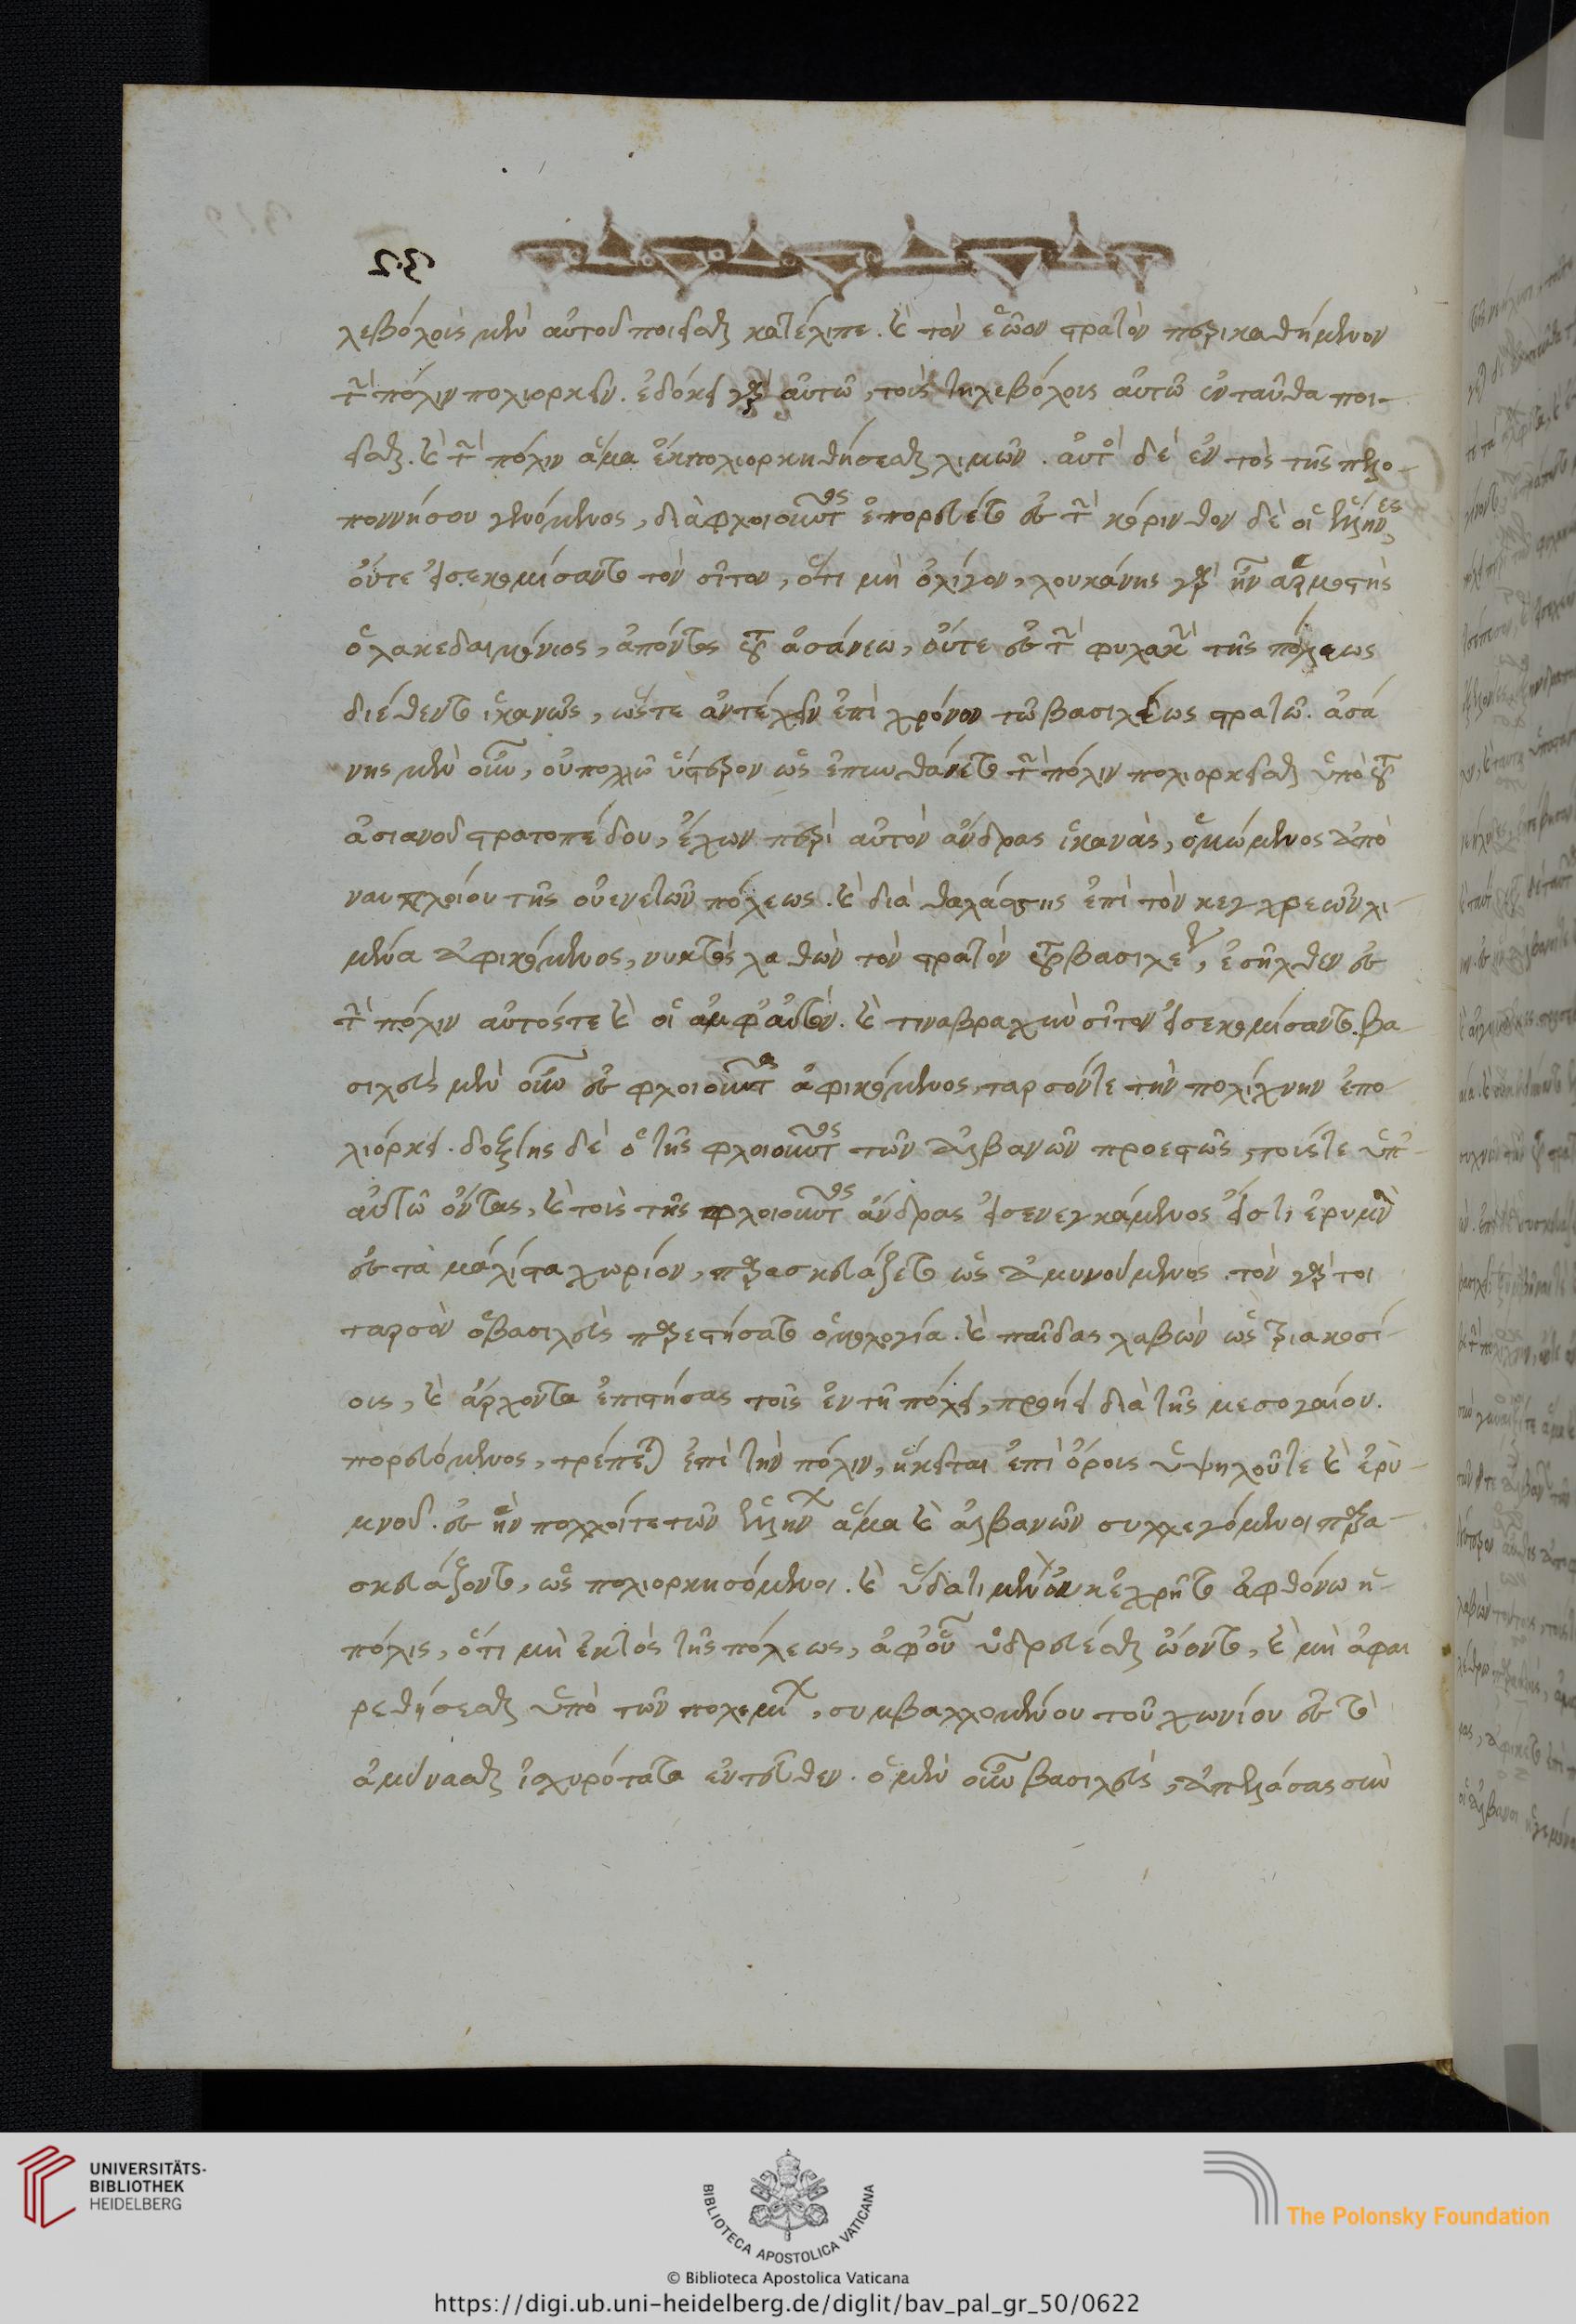 λεβόλοις μὲν αὐτοῦ ποιεῖσθαι κατέλιπε. καὶ τὸν ἑῶον στρατὸν περικαθήμενον
τὴν πόλιν πολιορκεῖν. ἐδόκει γὰρ αὐτῶ, τοὺς τηλεβόλοις αὐτῶ ἐνταῦθα ποι-
εῖσθαι. καὶ τὴν πόλιν ἅμα ἐκπολιορκηθήσεσθαι λιμῶν. αὐτὸς δὲ ἐν τὸς τῆς πελο-
ποννήσου γενόμενος, διὰ φλοιοῦντος ἐπορεύετο ἐς τὴν κόρινθον δὲ οἱ ἕλληνες,
οὔτε ἐσεκομίσαντο τὸν σῖτον, ὅτι μὴ ὀλίγον, λουκάνης γὰρ ἦν ἁρμοστὴς
ὁ λακεδαιμόνιος, ἀπόντος τοῦ ἀσάνεω, οὔτε ἐς τὴν φυλακὴν τῆς πόλεως
διέθεντο ἱκανῶς, ὥστε ἀντέχειν ἐπὶ χρόνον τῶ βασιλέως στρατῶ. ἀσά
νης μὲν οὖν, οὐ πολλῶ ὕστερον ὡς ἐπυνθάνετο τὴν πόλιν πολιορκεῖσθαι ὑπὸ τοῦ
ἀσιανοῦ στρατοπέδου, ἔχων περὶ αὐτὸν ἄνδρας ἱκανὰς, ὁρμώμενος ἀπὸ
ναυπλοίου τῆς οὐενετῶν πόλεως. καὶ διὰ θαλάσσης ἐπὶ τὸν κεγχρεῶν λι
μένα ἀφικόμενος, νυκτὸς λαθὼν τὸν στρατὸν τοῦ βασιλέως, ἐσῆλθεν ἐς
τὴν πόλιν αὐτός τε καὶ οἱ ἀμφ' αὐτόν. καὶ τινα βραχὺν σῖτον ἐσεκομίσαντο. βα-
σιλεὺς μὲν οὖν ἐς φλοιοῦντα ἀφικόμενος, ταρσόν τε τὴν πολίχνην ἐπο
λιόρκει. δοξίης δὲ ὁ τῆς φλοιοῦντος τῶν ἀλβανῶν προεστὼς, τούς τε ὑπ'
αὐτῶ ὄντας, καὶ τοὺς τῆς φλοιοῦντος ἄνδρας ἐσενεγκάμενος ἔς τι ἐρυμνὸν
ἐς τὰ μάλιστα χωρίον, παρασκευάζετο ὡς ἀμυνούμενος. τὸν γάρ τοι
ταρσὸν ὁ βασιλεὺς παρεστήσατο ὁμολογία. καὶ παῖδας λαβὼν ὡς τριακοσί-
οις, καὶ ἄρχοντα ἐπιστήσας τοῖς ἐν τῆ πόλει, προήει διὰ τῆς μεσογαίου.
πορευόμενος, τρέπεται ἐπὶ τὴν πόλιν, ἥκεῖται ἐπὶ ὄρους ὑψηλοῦ τε καὶ ἐρυ-
μνοῦ. ἐς ἣν πολλοί τε τῶν ἑλλήνων ἅμα καὶ ἀλβανῶν συλλεγόμενοι παρα-
σκευάζοντο, ὡς πολιορκησόμενοι. καὶ ὕδατι μὲν οὐκ ἐχρῆτο ἀφθόνω ἡ
πόλις, ὅτι μὴ ἐκτὸς τῆς πόλεως, ἀφ' οὗ ὑδρεύεσθαι ὤοντο, καὶ μὴ ἀφαι
ρεθήσεσθαι ὑπὸ τῶν πολεμίων, συμβαλλομένου τοῦ χωνίου ἐς τὸ
ἀμύνασθαι ἰσχυρότατα ἐντεῦθεν. ὁ μὲν οὖν βασιλεὺς, ἀπελάσας σὺν
UNIVERSITÄTS-
BIBLIOTHEK
HEIDELBERG
BIBLIOTECA APOSTOLICA VATICANA
© Biblioteca Apostolica Vaticana
The Polonsky Foundation
https://digi.ub.uni-heidelberg.de/diglit/bav_pal_gr_50/0622